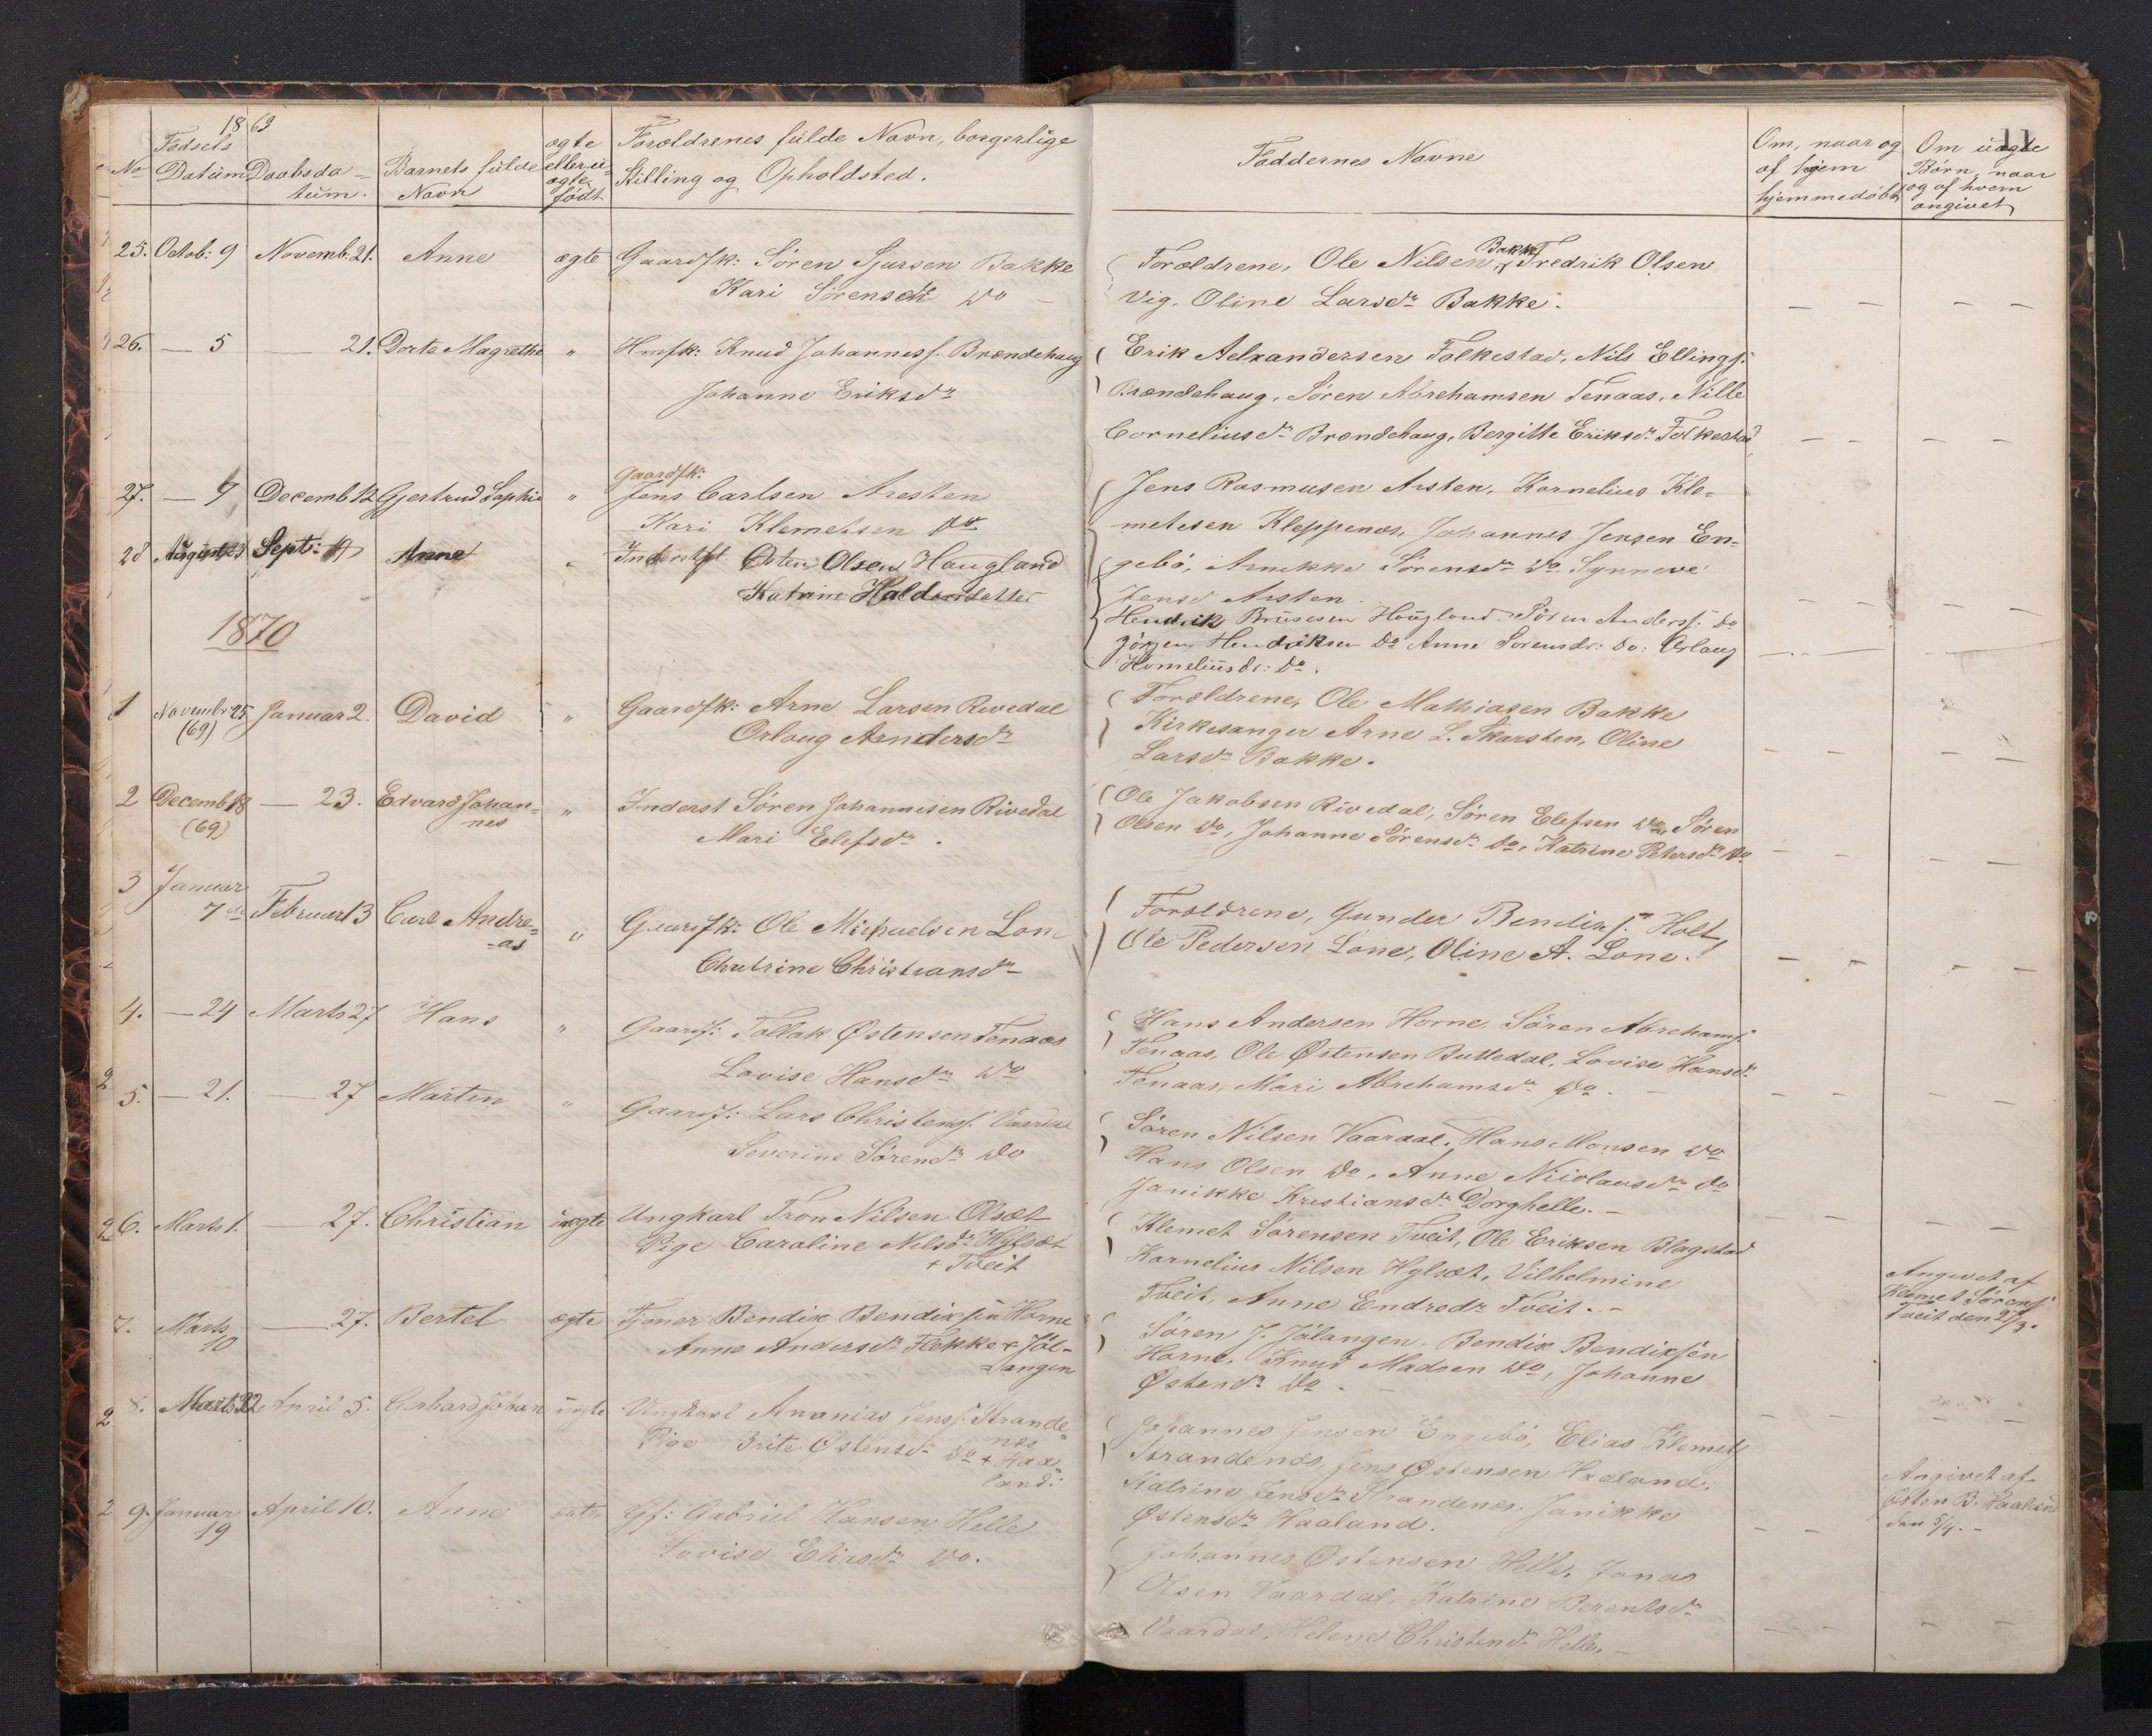 11
1869
No
Fødsels
Datum
Daabsda-
tum.
Barnets fulde
Navn
ægte
eller u-
ægte
født
Forældrenes fulde Navn, borgerlige
Stilling og Opholdsted.
Faddernes Navne
Om, naar og
af hvem
hjemmedøbt
Om uægte
Børn, naar
og af hvem
angivet
25. Octob: 9 Novemb: 21. Anne ægte Gaardfk: Sören Sjursen Bakke
Kari Sörensdr Do
Forældrene, Ole Nilsen Bakke, Fredrik Olsen
Vig. Oline Larsdr Bakke.
26. — 5 — 21. Dorte Magrethe " Hmfk: Knud Johannesf. Brændehaug
Johanne Eriksdr
Erik Aelxandersen Folkestad, Nils Ellingf.
Brændehaug, Søren Abrehamsen Tenaas, Nille
Corneliusdr Brændehaug, Bergitte Eriksdr Folkestad
27. — 7 Decemb 12 Gjertrud Sophie " Gaardfk:
Jens Carlsen Aresten
Kari Klemetsen Do
Jens Rasmusen Arsten, Kornelius Kle-
metesen Kleppenæs, Johannes Jensen En-
gebö, Annekke Sörensdr Do. Synneve
Jensd Arsten.
28 August 23 Sept: 19 Anne " Inderstfl Østen Olsen Haugland
Katrine Haldorsdatter
Hendrik Brusesen Haugland. Sören Andersf. Do
Jörgen Hendriksen Do Anne Sorensdr: Do: Orlaug
Korneliusdr: Do.
1870
1 Novembr 25 Januar 2. David " Gaardfk: Arne Larsen Rivedal
(69)
Orlaug Arndersdr
Forældrene, Ole Mathiasen Bakke
Kirkesanger Arne L. Skarsten, Oline
Larsdr Bakke.
2 Decemb 18 — 23. Edvard Johan-
(69) nes
" Inderst Søren Johannesen Rivedal
Mari Elefsdr.
Ole Jakobsen Rivedal, Søren Elefsen Do, Søren
Olsen Do, Johanne Sørensdr Do, Katrine Petersdr Do
3 Januar
7de Februar 13 Carl Andre-
as
" Gaardfk: Ole Michaelsen Lone
Chatrine Christiansdr
Forældrene, Gunder Bendixf. Holt,
Ole Pedersen Lone, Oline A. Lone.
4. — 24 Marts 27 Hans " Gaardf: Tollak Østensen Tenaas
Lovise Hansdr Do
Hans Andersen Horne, Sören Abrehamf.
Tenaas, Ole Østensen Buttedal, Lovise Hansdr
Tenaas, Mari Abrehamsdr Do.
5. — 21. — 27 Marten " Gaardf: Lars Christenf. Vardal
Severine Sörendr Do
Sören Nilsen Vaardal. Hans Monsen Do
Hans Olsen Do. Anne Nicolausdr Do
Janikke Kristiansdr Dorghelle.
6. Marts 1. — 27. Christian uægte Ungkarl Tron Nilsen Olsæt
Pige Caroline Nilsdr Hylsæt
+ Tveit
Klemet Sörensen Tveit, Ole Eriksen Blagstad
Kornelius Nilsen Hylsæt, Vilhelmine
Tveit, Anne Endresdr Tveit.
Angivet af
Klemet Sörenf
Tveit den 27/3.
7. Marts
10
— 27. Bertel ægte Tjener Bendix Bendixsen Horne
Anne Andersdr Flekke + Jöl-
langen
Sören J. Jölangen, Bendix Bendixsen
Horne. Knud Madsen Do, Johanne
Østendr Do.
8. Marts 22 April 5. Gerhard Johan uægte Ungkarl Ananias Jensf. Strande-
næs
Pige Brite Østensdr Do + Haa-
land:
Johannes Jensen Engebö, Elias Klemetf
Strandenæs, Jens Østensen Haaland.
Katrine Jensdr Strandenæs. Janikke
Østensdr Haaland.
Angivet af
Østen B. Haaland
den 5/4.
9. Januar
19
April 10. Anne ægte Gf: Gabriel Hansen Helle
Lovise Eliasdr Do.
Johannes Østensen Helle, Jonas
Olsen Vaardal, Katrine Berentsdr
Vaardal, Helene Christendr Helle.